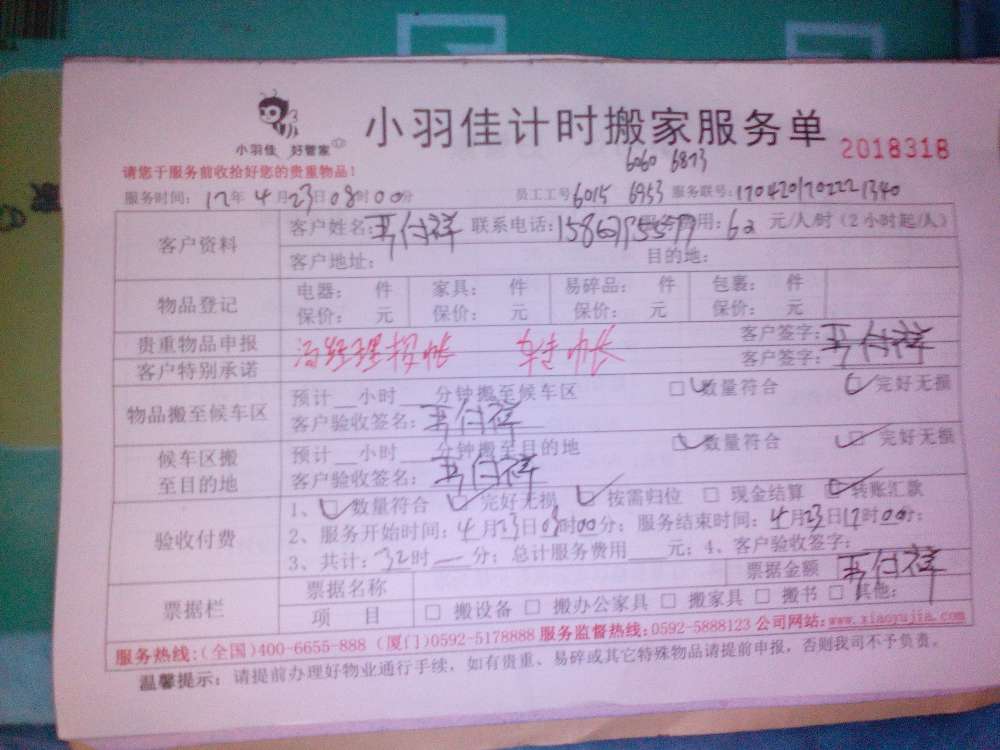 小羽佳 好管家
小羽佳计时搬家服务单
2018318
6060 6873
请您于服务前收拾好您的贵重物品!
服务时间: 17年4月23日08时00分 员工工号 6015 6953 服务联号:
客户资料
客户姓名: 付祥 联系电话: 费用: 元/人/时（2小时起/人）
客户地址: 目的地:
物品登记
电器: 件 家具: 件 易碎品: 件 包裹: 件
保价: 元 保价: 元 保价: 元 保价: 元
贵重物品申报 客户签字: 付祥
客户特别承诺 客户签字:
物品搬至候车区
预计__小时__分钟搬至候车区 □数量符合 □完好无损
客户验收签名: 付祥
候车区搬至目的地
预计__小时__分钟搬至目的地 □数量符合 □完好无损
客户验收签名: 付祥
验收付费
1、□数量符合 □完好无损 □按需归位 □现金结算 □转账汇款
2、服务开始时间: 4月23日08时00分; 服务结束时间: 4月23日17时00分;
3、共计: 32时__分; 总计服务费用__元; 4、客户验收签字: 付祥
票据栏
票据名称 票据金额
项 目 □搬设备 □搬办公家具 □搬家具 □搬书 □其他:
服务热线:(全国)400-6655-888 (厦门)0592-5178888 服务监督热线:0592-5888123 公司网站:www.xiaoyujia.com
温馨提示: 请提前办理好物业通行手续，如有贵重、易碎或其它特殊物品请提前申报，否则我司不予负责。